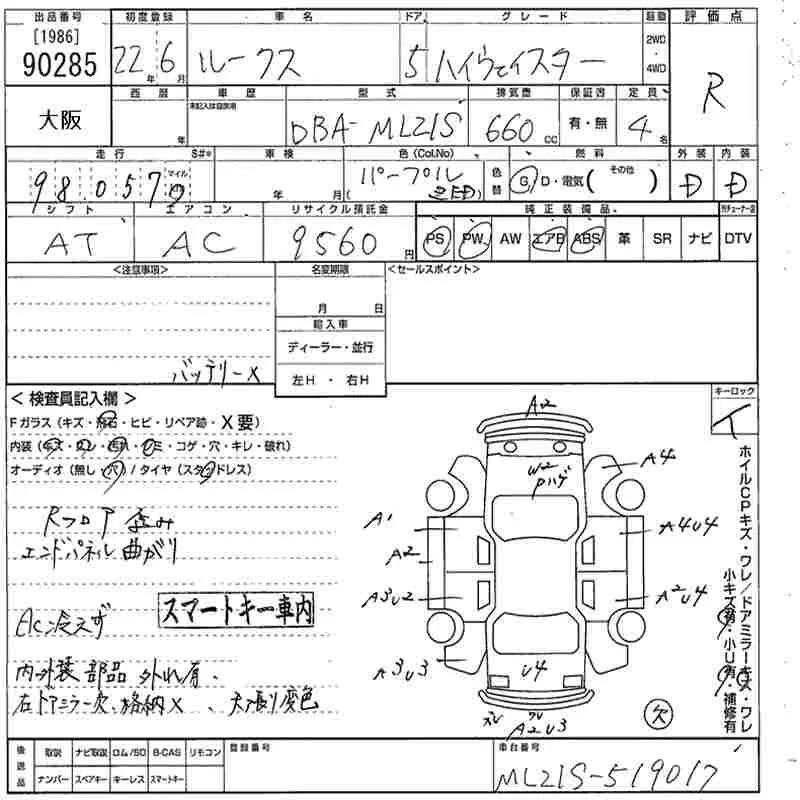 出品番号 初度登録 車名 ドア グレード 駆動 評価点
[1986]
90285 22年 6月 ルークス 5 ハイウェイスター 2WD・4WD R
大阪 西暦 年 車歴 未記入は自家用 型式 DBA-ML21S 排気量 660cc 保証書 有・無 定員 4名
走行 S#* 車検 色(Col.No) 色替 燃料 外装 内装
98,057 マイル km 年 月 パープル ( ) G D・電気( その他 ) D D
シフト エアコン リサイクル預託金 純正装備品
AT AC 9560円 PS PW AW エアB ABS 革 SR ナビ DTV
<注意事項> 名変期限 <セールスポイント>
月 日
輸入車
ディーラー・並行
バッテリーx 左H・右H
<検査員記入欄> キーロック
Fガラス(キズ・飛石・ヒビ・リペア跡・X要) イ
内装(キズ・ワレ・汚れ・シミ・コゲ・穴・キレ・破れ)
オーディオ(無し・穴)/タイヤ(スタッドレス)
Rフロア 歪み
エンドパネル曲がり
AC冷えず スマートキー車内
内外装 部品 外れ有、
右ドアミラー欠、格納x、天張り変色
A2
W2
Pハゲ
A4
A1
A4U4
A2
A3U2
A2U4
A3U3
U4
ズレ ワレ
A2U3
欠
ホイルCPキズ・ワレ/ドアミラーキズ・ワレ
小キズ有・小U有・補修有
後送品 取説 ナビ取説 ロム/SD B-CAS リモコン 登録番号 車台番号
ナンバー スペアキー キーレス スマートキー ML21S-519017